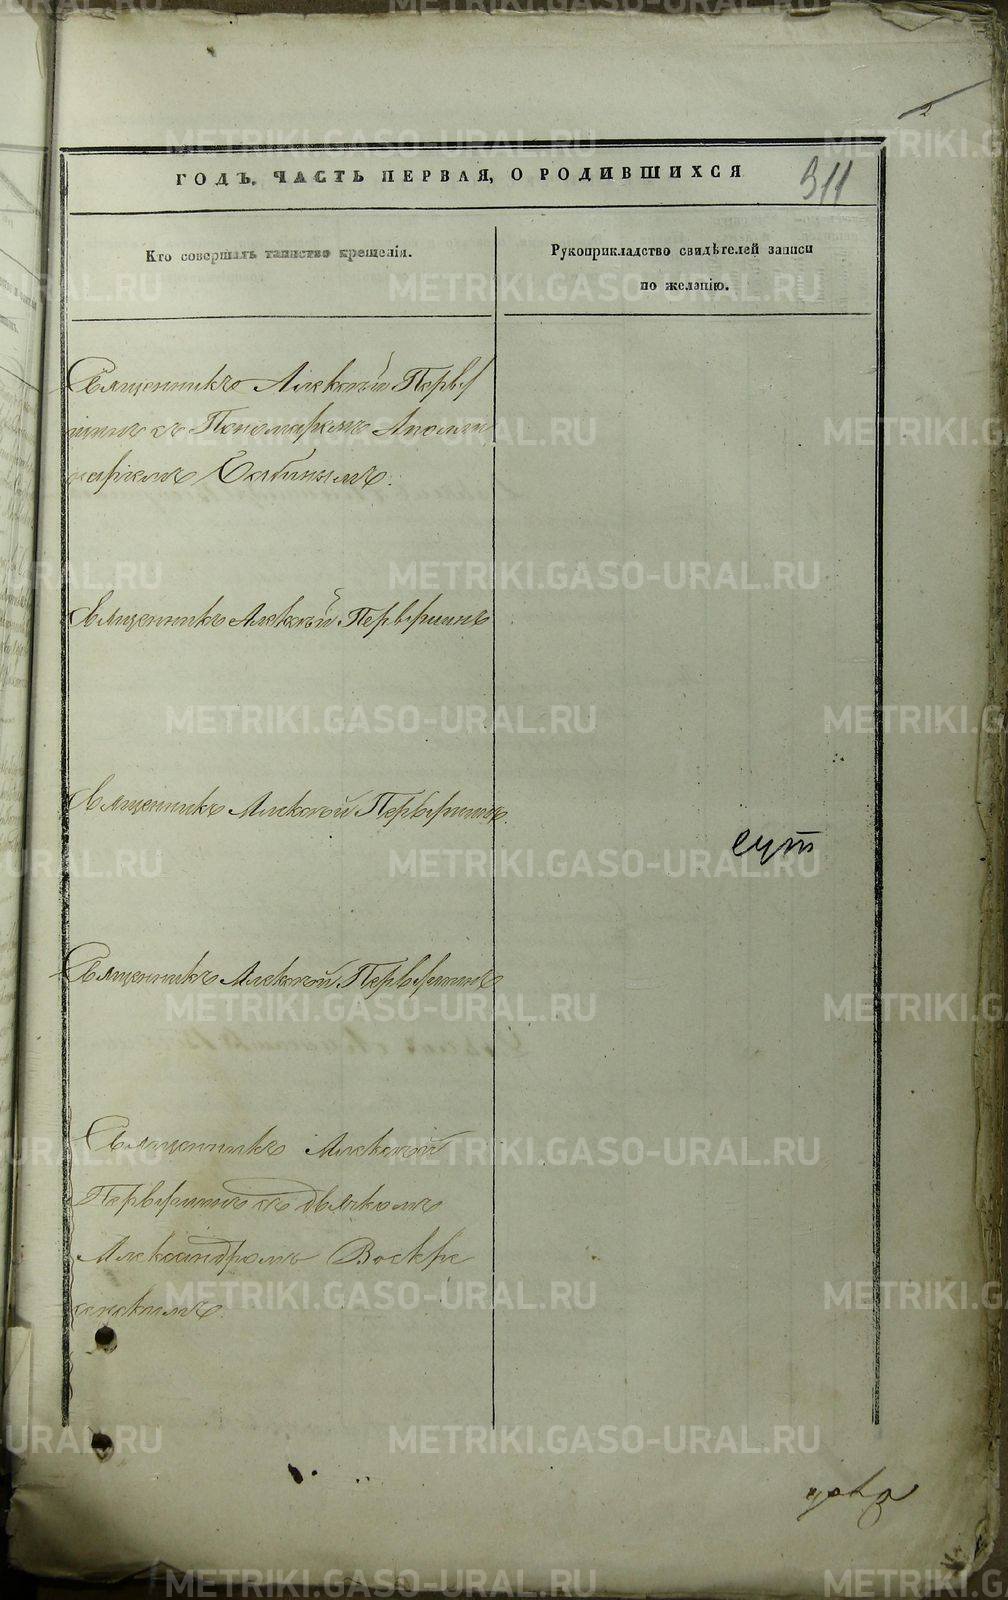 2
311
ГОДЪ, ЧАСТЬ ПЕРВАЯ, О РОДИВШИХСЯ
Кто совершалъ таинство крещенія.
Рукоприкладство свидѣтелей записи
по желанію.
Священникъ Алексѣй Перву
шинъ съ Пономаремъ Аполли
наріемъ
Священникъ Алексѣй Первушинъ
Священникъ Алексѣй Первушинъ.
сут
Священникъ Алексѣй Первушинъ
Священникъ Алексѣй
Первушинъ съ дьячкомъ
Александромъ Воскре
сенскимъ.
METRIKI.GASO-URAL.RU